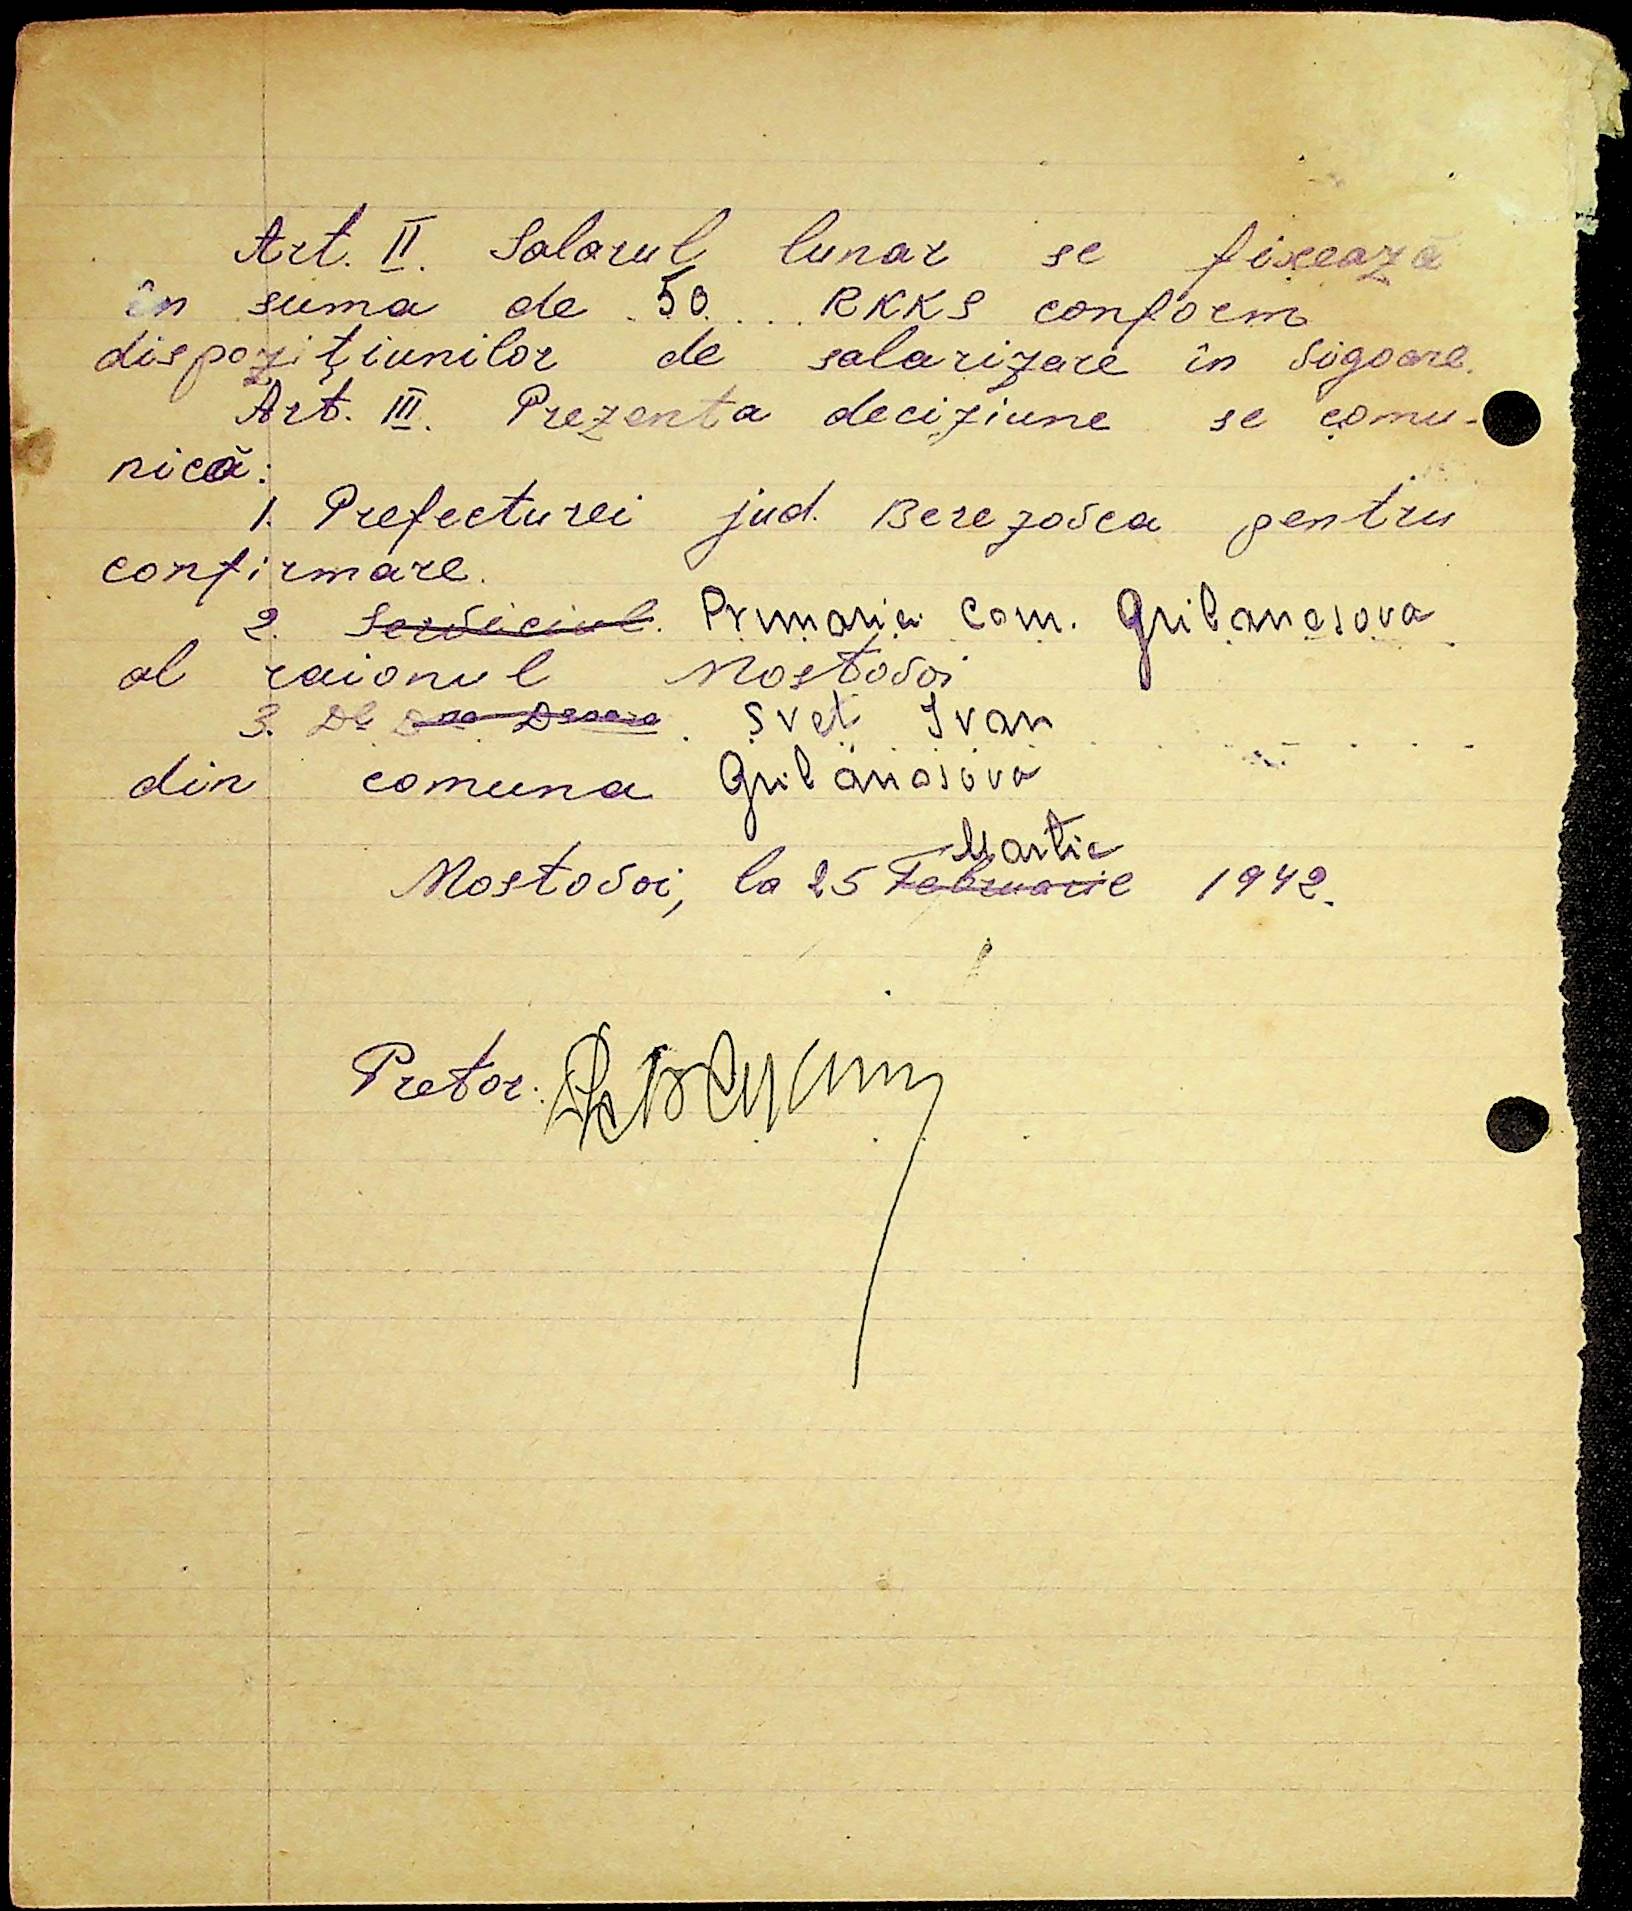 Art. II. Salarul lunar se fixează
în suma de .50. ... RKKS conform
dispozițiunilor de salarizare în vigoare.
Art. III. Prezenta deciziune se comu-
nică:
1. Prefecturei jud. Berezovca pentru
confirmare.
2. Serviciul. Primaria Com. Gribanosova
al raionul Mostovoi
3. Dl Dna Dsoara. Svet Ivan
din comuna Gribanosova
Martie
Mostovoi, la 25 Februarie 1942.
Pretor: